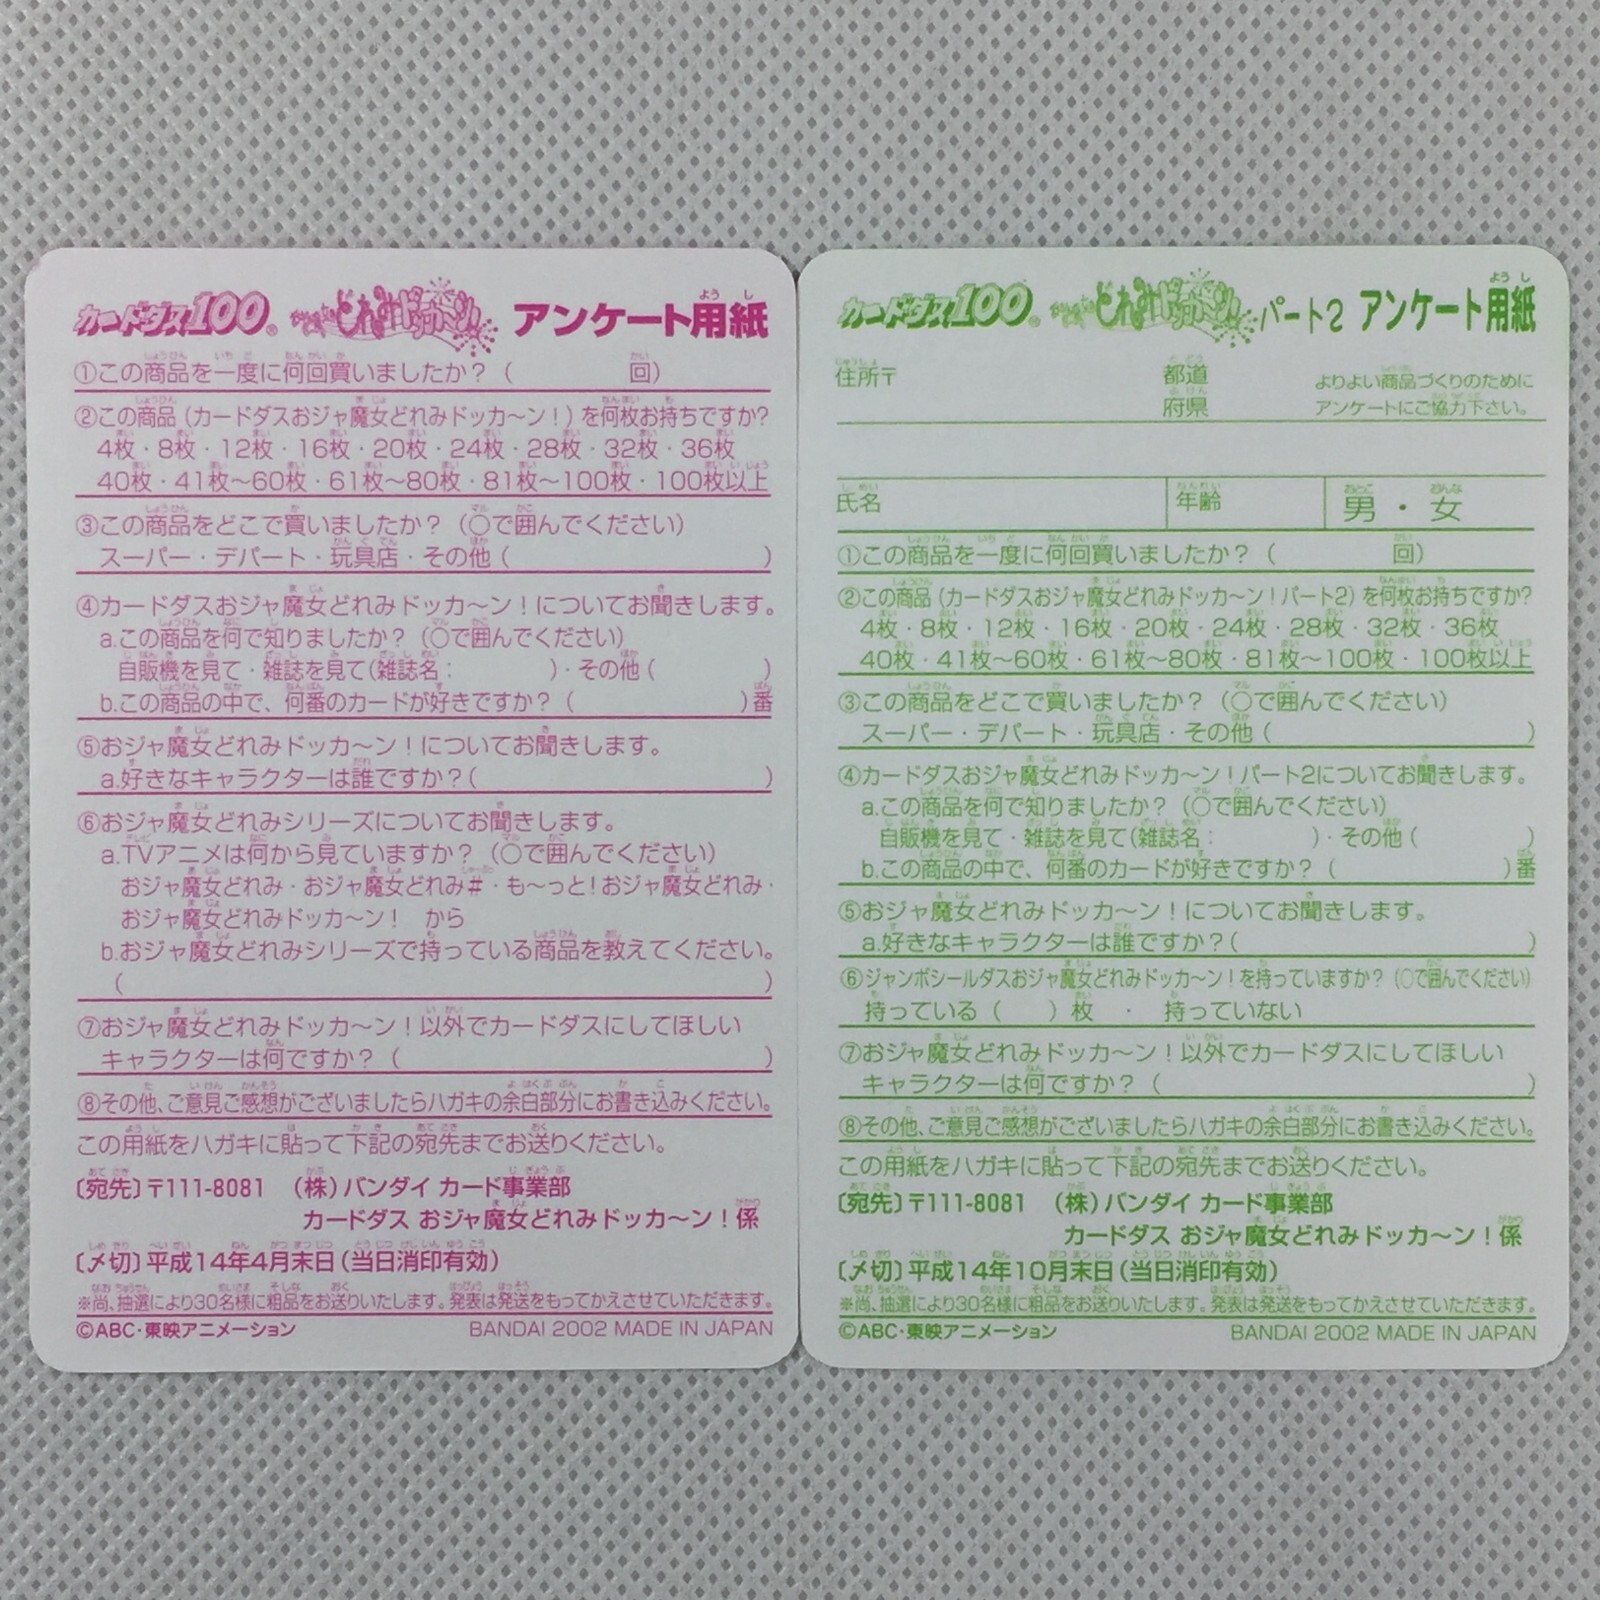 カードダス100® おジャ魔女どれみドッカ〜ン! アンケート用紙
①この商品を一度に何回買いましたか?( 回)
②この商品(カードダスおジャ魔女どれみドッカ〜ン!)を何枚お持ちですか?
4枚・8枚・12枚・16枚・20枚・24枚・28枚・32枚・36枚
40枚・41枚〜60枚・61枚〜80枚・81枚〜100枚・100枚以上
③この商品をどこで買いましたか?(○で囲んでください)
スーパー・デパート・玩具店・その他( )
④カードダスおジャ魔女どれみドッカ〜ン!についてお聞きします。
a.この商品を何で知りましたか?(○で囲んでください)
自販機を見て・雑誌を見て(雑誌名: )・その他( )
b.この商品の中で、何番のカードが好きですか?( )番
⑤おジャ魔女どれみドッカ〜ン!についてお聞きします。
a.好きなキャラクターは誰ですか?( )
⑥おジャ魔女どれみシリーズについてお聞きします。
a.TVアニメは何から見ていますか?(○で囲んでください)
おジャ魔女どれみ・おジャ魔女どれみ#・も〜っと!おジャ魔女どれみ・
おジャ魔女どれみドッカ〜ン! から
b.おジャ魔女どれみシリーズで持っている商品を教えてください。
( )
⑦おジャ魔女どれみドッカ〜ン!以外でカードダスにしてほしい
キャラクターは何ですか?( )
⑧その他、ご意見ご感想がございましたらハガキの余白部分にお書き込みください。
この用紙をハガキに貼って下記の宛先までお送りください。
〔宛先〕〒111-8081 (株)バンダイ カード事業部
カードダス おジャ魔女どれみドッカ〜ン!係
〔〆切〕平成14年4月末日(当日消印有効)
※尚、抽選により30名様に粗品をお送りいたします。発表は発送をもってかえさせていただきます。
©ABC・東映アニメーション BANDAI 2002 MADE IN JAPAN
カードダス100® おジャ魔女どれみドッカ〜ン! パート2 アンケート用紙
住所〒 都道 よりよい商品づくりのために
府県 アンケートにご協力下さい。
氏名 年齢 男・女
①この商品を一度に何回買いましたか?( 回)
②この商品(カードダスおジャ魔女どれみドッカ〜ン!パート2)を何枚お持ちですか?
4枚・8枚・12枚・16枚・20枚・24枚・28枚・32枚・36枚
40枚・41枚〜60枚・61枚〜80枚・81枚〜100枚・100枚以上
③この商品をどこで買いましたか?(○で囲んでください)
スーパー・デパート・玩具店・その他( )
④カードダスおジャ魔女どれみドッカ〜ン!パート2についてお聞きします。
a.この商品を何で知りましたか?(○で囲んでください)
自販機を見て・雑誌を見て(雑誌名: )・その他( )
b.この商品の中で、何番のカードが好きですか?( )番
⑤おジャ魔女どれみドッカ〜ン!についてお聞きします。
a.好きなキャラクターは誰ですか?( )
⑥ジャンボシールダスおジャ魔女どれみドッカ〜ン!を持っていますか?(○で囲んでください)
持っている( )枚 ・ 持っていない
⑦おジャ魔女どれみドッカ〜ン!以外でカードダスにしてほしい
キャラクターは何ですか?( )
⑧その他、ご意見ご感想がございましたらハガキの余白部分にお書き込みください。
この用紙をハガキに貼って下記の宛先までお送りください。
〔宛先〕〒111-8081 (株)バンダイ カード事業部
カードダス おジャ魔女どれみドッカ〜ン!係
〔〆切〕平成14年10月末日(当日消印有効)
※尚、抽選により30名様に粗品をお送りいたします。発表は発送をもってかえさせていただきます。
©ABC・東映アニメーション BANDAI 2002 MADE IN JAPAN